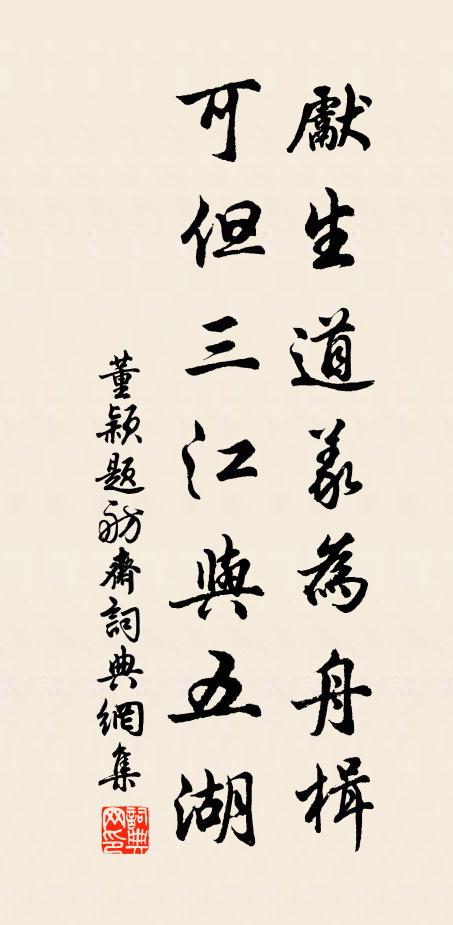 獻生道義為舟楫
可但三江與五湖
董穎題舫齋詞典網集
詞典網印